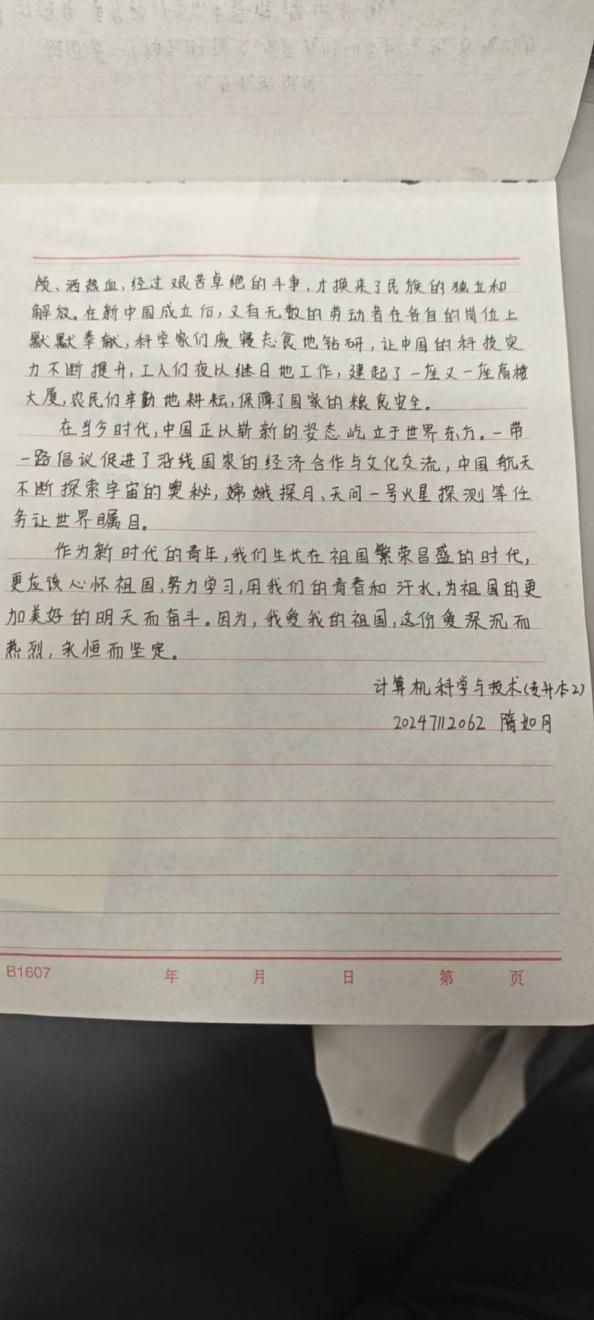 颅、洒热血,经过艰苦卓绝的斗争,才换来了民族的独立和
解放。在新中国成立后,又有无数的劳动者在各自的岗位上
默默奉献,科学家们废寝忘食地钻研,让中国的科技实
力不断提升,工人们夜以继日地工作,建起了一座又一座高楼
大厦,农民们辛勤地耕耘,保障了国家的粮食安全。
在当今时代,中国正以崭新的姿态屹立于世界东方。一带
一路倡议促进了沿线国家的经济合作与文化交流,中国航天
不断探索宇宙的奥秘,嫦娥探月、天问一号火星探测等任
务让世界瞩目。
作为新时代的青年,我们生长在祖国繁荣昌盛的时代,
更应该心怀祖国,努力学习,用我们的青春和汗水,为祖国的更
加美好的明天而奋斗。因为,我爱我的祖国,这份爱深沉而
热烈,永恒而坚定。
计算机科学与技术(专升本2)
20247112062 隋如月
B1607 年 月 日 第 页